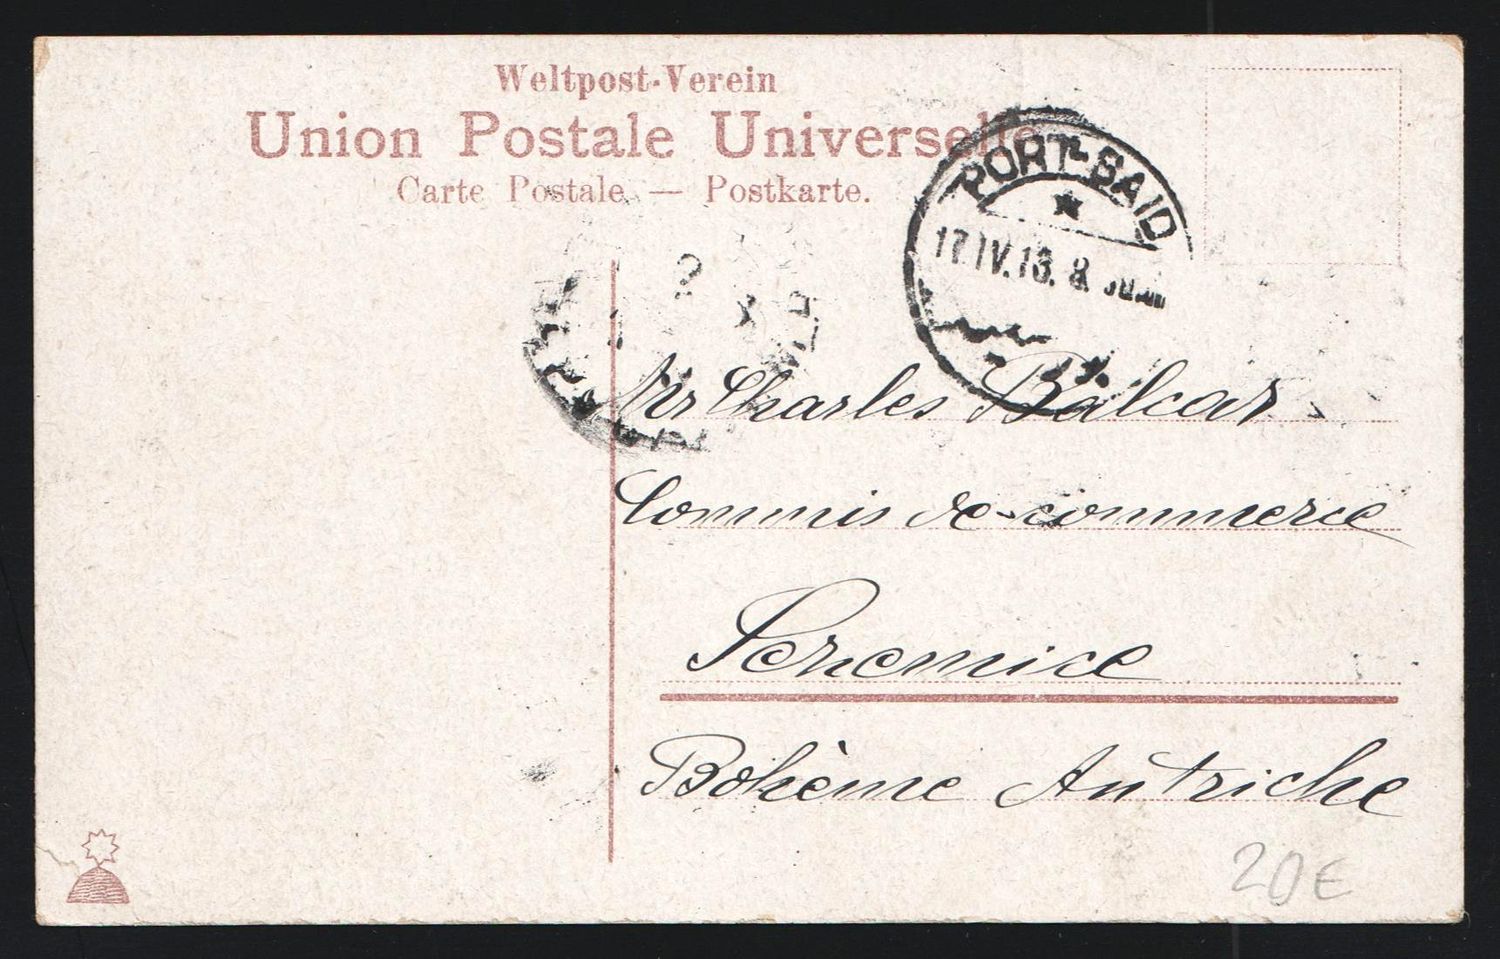 Weltpost-Verein
Union Postale Universelle
Carte Postale — Postkarte.
PORT-SAID
17 IV. 13. 8.
Mr Charles Balcar
Commis de commerce
Bohème Autriche
20€